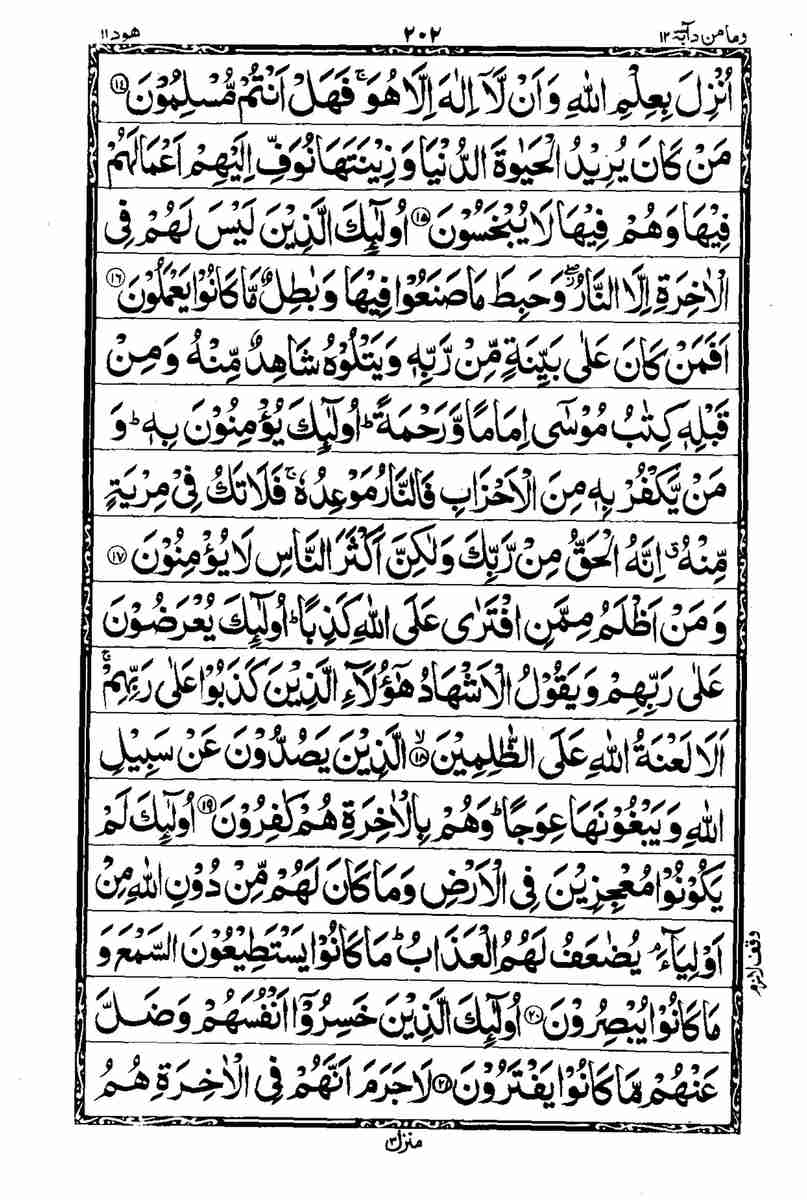 وما من دآبة ١٢
٢٠٢
هود ١١
اُنْزِلَ بِعِلْمِ اللّٰهِ وَاَنْ لَّاۤ اِلٰهَ اِلَّا هُوَ ۚ فَهَلْ اَنْتُمْ مُّسْلِمُوْنَ ﴿١٤﴾
مَنْ كَانَ يُرِيْدُ الْحَيٰوةَ الدُّنْيَا وَزِيْنَتَهَا نُوَفِّ اِلَيْهِمْ اَعْمَالَهُمْ
فِيْهَا وَهُمْ فِيْهَا لَا يُبْخَسُوْنَ ﴿١٥﴾ اُولٰٓئِكَ الَّذِيْنَ لَيْسَ لَهُمْ فِى
الْاٰخِرَةِ اِلَّا النَّارُ ۖ وَحَبِطَ مَا صَنَعُوْا فِيْهَا وَبٰطِلٌ مَّا كَانُوْا يَعْمَلُوْنَ ﴿١٦﴾
اَفَمَنْ كَانَ عَلٰى بَيِّنَةٍ مِّنْ رَّبِّهٖ وَيَتْلُوْهُ شَاهِدٌ مِّنْهُ وَمِنْ
قَبْلِهٖ كِتٰبُ مُوْسٰٓى اِمَامًا وَّرَحْمَةً ؕ اُولٰٓئِكَ يُؤْمِنُوْنَ بِهٖ ؕ وَ
مَنْ يَّكْفُرْ بِهٖ مِنَ الْاَحْزَابِ فَالنَّارُ مَوْعِدُهٗ ۚ فَلَا تَكُ فِيْ مِرْيَةٍ
مِّنْهُ ۗ اِنَّهُ الْحَقُّ مِنْ رَّبِّكَ وَلٰكِنَّ اَكْثَرَ النَّاسِ لَا يُؤْمِنُوْنَ ﴿١٧﴾
وَمَنْ اَظْلَمُ مِمَّنِ افْتَرٰى عَلَى اللّٰهِ كَذِبًا ؕ اُولٰٓئِكَ يُعْرَضُوْنَ
عَلٰى رَبِّهِمْ وَيَقُوْلُ الْاَشْهَادُ هٰٓؤُلَآءِ الَّذِيْنَ كَذَبُوْا عَلٰى رَبِّهِمْ ۚ
اَلَا لَعْنَةُ اللّٰهِ عَلَى الظّٰلِمِيْنَ ۙ﴿١٨﴾ الَّذِيْنَ يَصُدُّوْنَ عَنْ سَبِيْلِ
اللّٰهِ وَيَبْغُوْنَهَا عِوَجًا ؕ وَهُمْ بِالْاٰخِرَةِ هُمْ كٰفِرُوْنَ ﴿١٩﴾ اُولٰٓئِكَ لَمْ
يَكُوْنُوْا مُعْجِزِيْنَ فِى الْاَرْضِ وَمَا كَانَ لَهُمْ مِّنْ دُوْنِ اللّٰهِ مِنْ
اَوْلِيَآءَ ۘ يُضٰعَفُ لَهُمُ الْعَذَابُ ؕ مَا كَانُوْا يَسْتَطِيْعُوْنَ السَّمْعَ وَ
وقف لازم
مَا كَانُوْا يُبْصِرُوْنَ ﴿٢٠﴾ اُولٰٓئِكَ الَّذِيْنَ خَسِرُوْۤا اَنْفُسَهُمْ وَضَلَّ
عَنْهُمْ مَّا كَانُوْا يَفْتَرُوْنَ ﴿٢١﴾ لَا جَرَمَ اَنَّهُمْ فِى الْاٰخِرَةِ هُمُ
منزل ٣